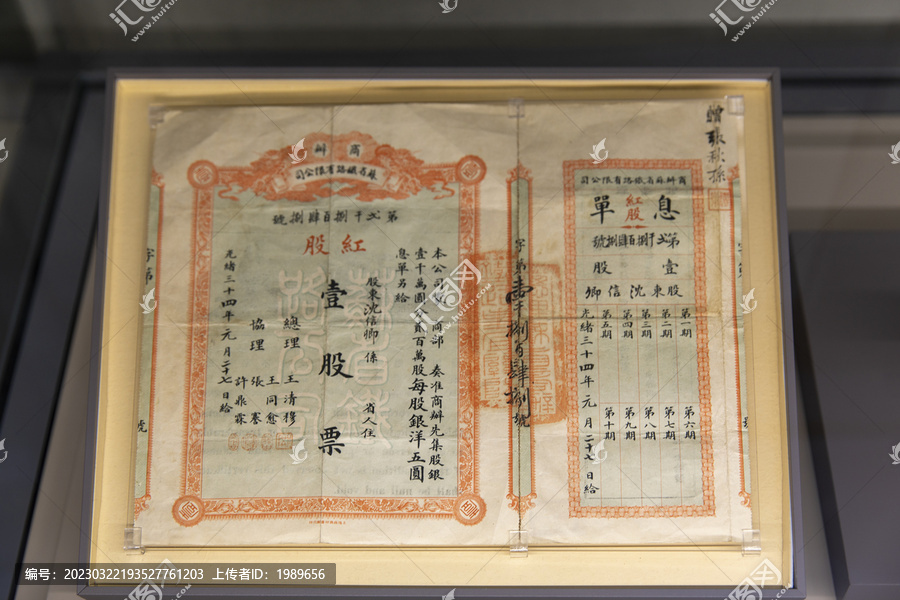 商辦
蘇省鐵路有限公司
第弍千捌百肆捌號
紅股
本公司
商部
奏准商辦先集股銀
壹千萬圓分貳百萬股每股銀洋五圓
息單另給
股東沈信卿係
省人住
壹股票
總理 王清穆
協理 王同愈
張謇
許鼎霖
光緒三十四年元月二十七日給
字第
號
商辦蘇省鐵路有限公司
息單
紅股
第弍千捌百肆捌號
壹股
股東沈信卿
第一期
第二期
第三期
第四期
第五期
第六期
第七期
第八期
第九期
第十期
光緒三十四年元月二十七日給
字第
號
汇图网
www.huitu.com
编号：20230322193527761203 上传者ID：1989656